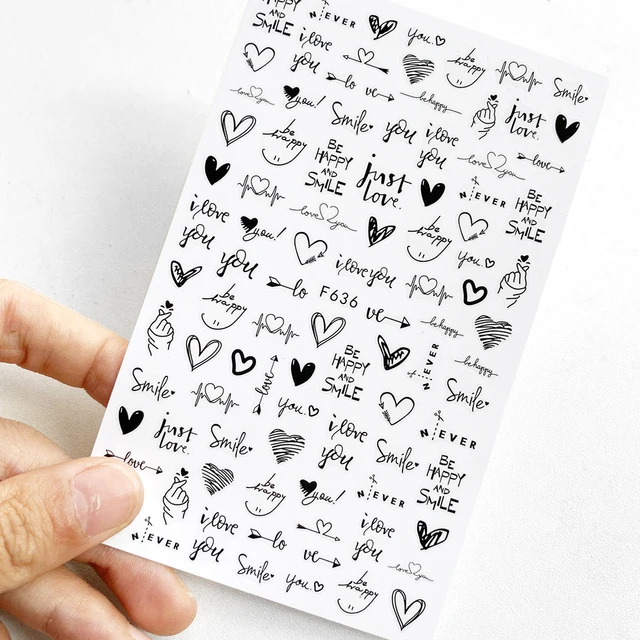 BE
HAPPY
AND
SMILE
N EVER
you.
be
happy
Smile
i love
you
lo ve
be happy
just
love.
love you
you!
Smile
you
i love
you
love you
love
be
happy
BE
HAPPY
AND
SMILE
just
love.
N EVER
BE
HAPPY
AND
SMILE
i love
you
you!
love you
be
happy
you.
you
i love you
lo F636 ve
be happy
be
happy
BE
HAPPY
AND
SMILE
N EVER
be happy
Smile
love
you.
Smile
N EVER
just
love.
Smile
i love
you
Smile
BE
HAPPY
AND
SMILE
love
be
happy
you!
N EVER
N EVER
i love
you
lo ve
i love
you
love you
Smile
you.
be
happy